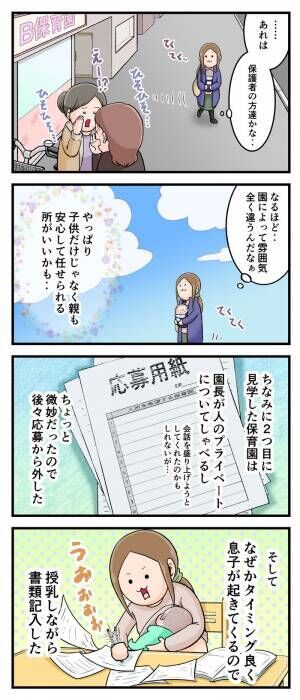 ……
あれは
保護者の方達かな‥
てくてく‥
てくてく‥
B保育園
えー!?
ひそひそ‥
ひそひそ‥
なるほど‥
園によって雰囲気
全く違うんだなぁ
やっぱり
子供だけじゃなく親も
安心して任せられる
所がいいかも‥
てくてく
ちなみに2つ目に
見学した保育園は
応募用紙
園長が人のプライベート
についてしゃべるし
会話を盛り上げようと
してくれたのかも
しれないが…
ちょっと
微妙だったので
後々応募から外した
そして
なぜかタイミング良く
息子が起きてくるので
うおおおお
授乳しながら
書類記入した